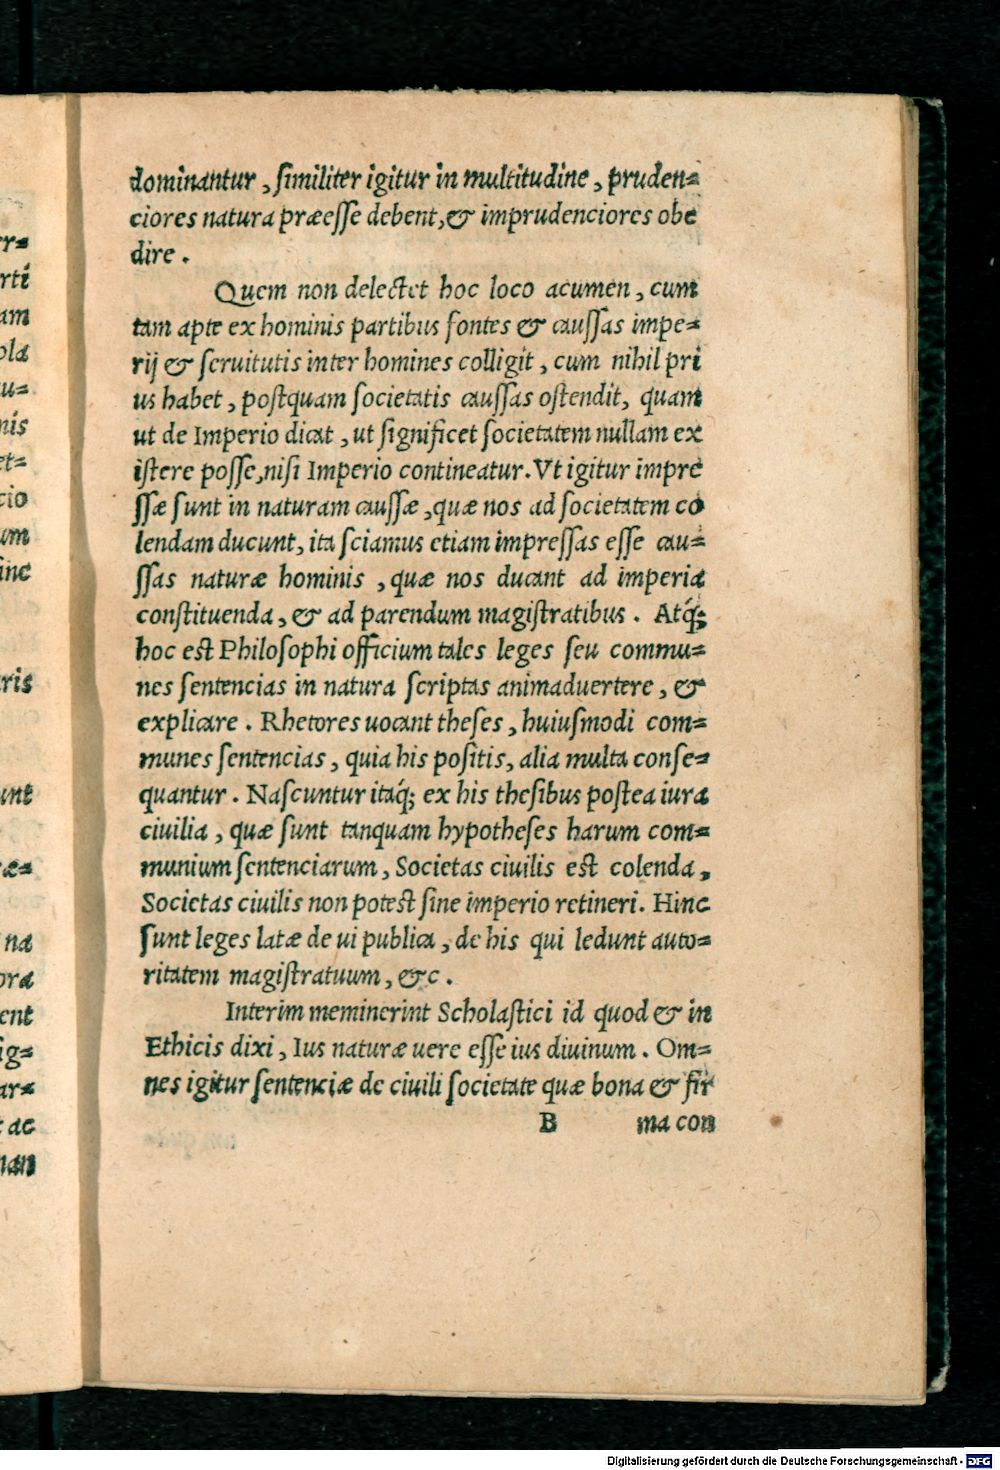 dominantur, similiter igitur in multitudine, pruden=
ciores natura præesse debent, & imprudenciores obe
dire.
Quem non delectet hoc loco acumen, cum
tam apte ex hominis partibus fontes & caussas impe=
rij & seruitutis inter homines colligit, cum nihil pri
us habet, postquam societatis caussas ostendit, quam
ut de Imperio dicat, ut significet societatem nullam ex
istere posse, nisi Imperio contineatur. Vt igitur impre
ssæ sunt in naturam caussæ, quæ nos ad societatem co
lendam ducunt, ita sciamus etiam impressas esse cau=
ssas naturæ hominis, quæ nos ducant ad imperia
constituenda, & ad parendum magistratibus. Atq́;
hoc est Philosophi officium tales leges seu commu=
nes sentencias in natura scriptas animaduertere, &
explicare. Rhetores uocant theses, huiusmodi com=
munes sentencias, quia his positis, alia multa conse=
quantur. Nascuntur itaq́; ex his thesibus postea iura
ciuilia, quæ sunt tanquam hypotheses harum com=
munium sentenciarum, Societas ciuilis est colenda,
Societas ciuilis non potest sine imperio retineri. Hinc
sunt leges latæ de ui publica, de his qui ledunt auto=
ritatem magistratuum, &c.
Interim meminerint Scholastici id quod & in
Ethicis dixi, Ius naturæ uere esse ius diuinum. Om=
nes igitur sentenciæ de ciuili societate quæ bona & fir
B ma con
Digitalisierung gefördert durch die Deutsche Forschungsgemeinschaft - DFG